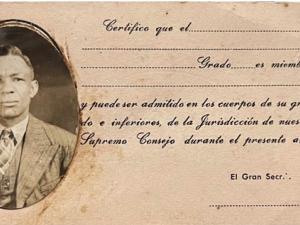 Certifico que el
Grado es miemb
y puede ser admitido en los cuerpos de su gra
do e inferiores, de la Jurisdicción de nues
Supremo Consejo durante el presente a
El Gran Secr∴